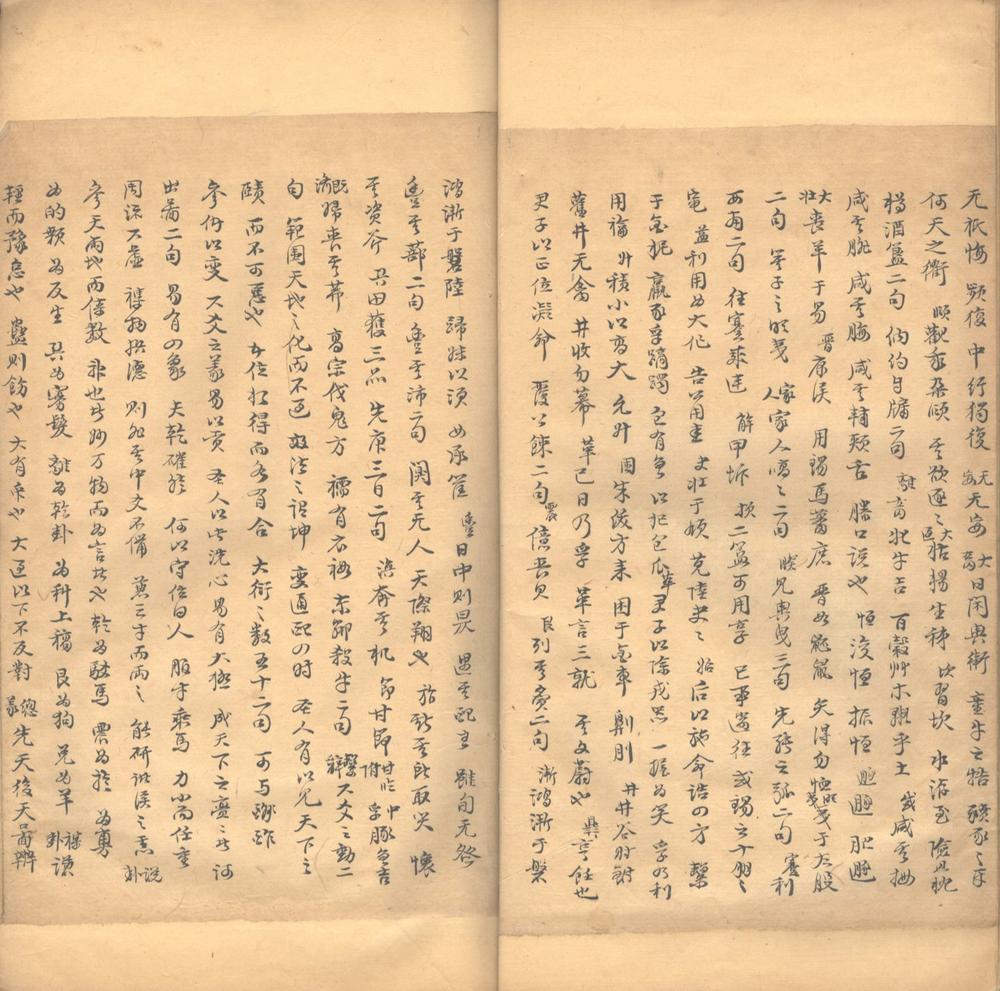 无祇悔 頻復 中行獨復 无妄 无妄 大畜 日閑輿衛 童牛之牿 豶豕之牙
何天之衢 頤 觀我朵頤 其欲逐逐 大過 枯楊生稊 坎 習坎 水洊至 險且枕
樽酒簋二句 納約自牖二句 離 畜牝牛吉 百穀艸木麗乎土 咸 咸其拇
咸其腓 咸其脢 咸其輔頰舌 滕口說也 恒 浚恒 振恒 遯 肥遯
大壯 喪羊于易 晉 康侯 用錫馬蕃庶 晉如鼫鼠 矢得勿恤 明夷 夷于左股
二句 箕子之明夷 家人 家人嗃嗃二句 睽 見輿曳三句 先張之弧二句 蹇 利
西南二句 往蹇來連 解 甲坼 損 二簋可用享 已事遄往 或錫之十朋之
龜 益 利用為大作 告公用圭 夬 壯于頄 莧陸夬夬 姤 后以施命誥四方 繫
于金柅 羸豕孚蹢躅 包有魚 以杞包瓜 萃 君子以除戎器 一握為笑 孚乃利
用禴 升 積小以高大 允升 困 朱紱方來 困于金車 劓刖 井 井谷射鮒
舊井无禽 井收勿幕 革 已日乃孚 革言三就 其文蔚也 鼎 亨飪也
君子以正位凝命 覆公餗二句 震 億喪貝 艮 列其夤二句 漸 鴻漸于磐
鴻漸于磐陸 歸妹以須 女承筐 豐 日中則昃 遇其配主 雖旬无咎
豐其蔀二句 豐其沛二句 闃其无人 天際翔也 旅 斯其所取災 懷
其資斧 巽 田獲三品 先庚三日二句 渙奔其机 節 甘節 中孚 豚魚吉
既濟 婦喪其茀 高宗伐鬼方 繻有衣袽 東鄰殺牛二句 繫辭 六爻之動二
句 範圍天地之化而不過 效法之謂坤 變通配四時 聖人有以見天下之
賾 而不可惡也 五位相得而各有合 大衍之數五十二句 可與酬酢
參伍以變 六爻之義易以貢 聖人以此洗心 易有大極 成天下之亹亹者 河
出圖二句 易有四象 夫乾確然 何以守位曰人 服牛乘馬 力小而任重
周流六虛 雜物撰德 則非其中爻不備 兼三才而兩之 能研諸侯之慮 說卦
參天兩地而倚數 神也者妙万物而為言者也 乾為駁馬 震為旉 為勇
為的顙 為反生 巽為寡髮 離為乾卦 為科上槁 艮為狗 兌為羊 雜卦 謙
輕而豫怠也 蠱則飭也 大有眾也 大過以下不反對 總義 先天後天圖辨